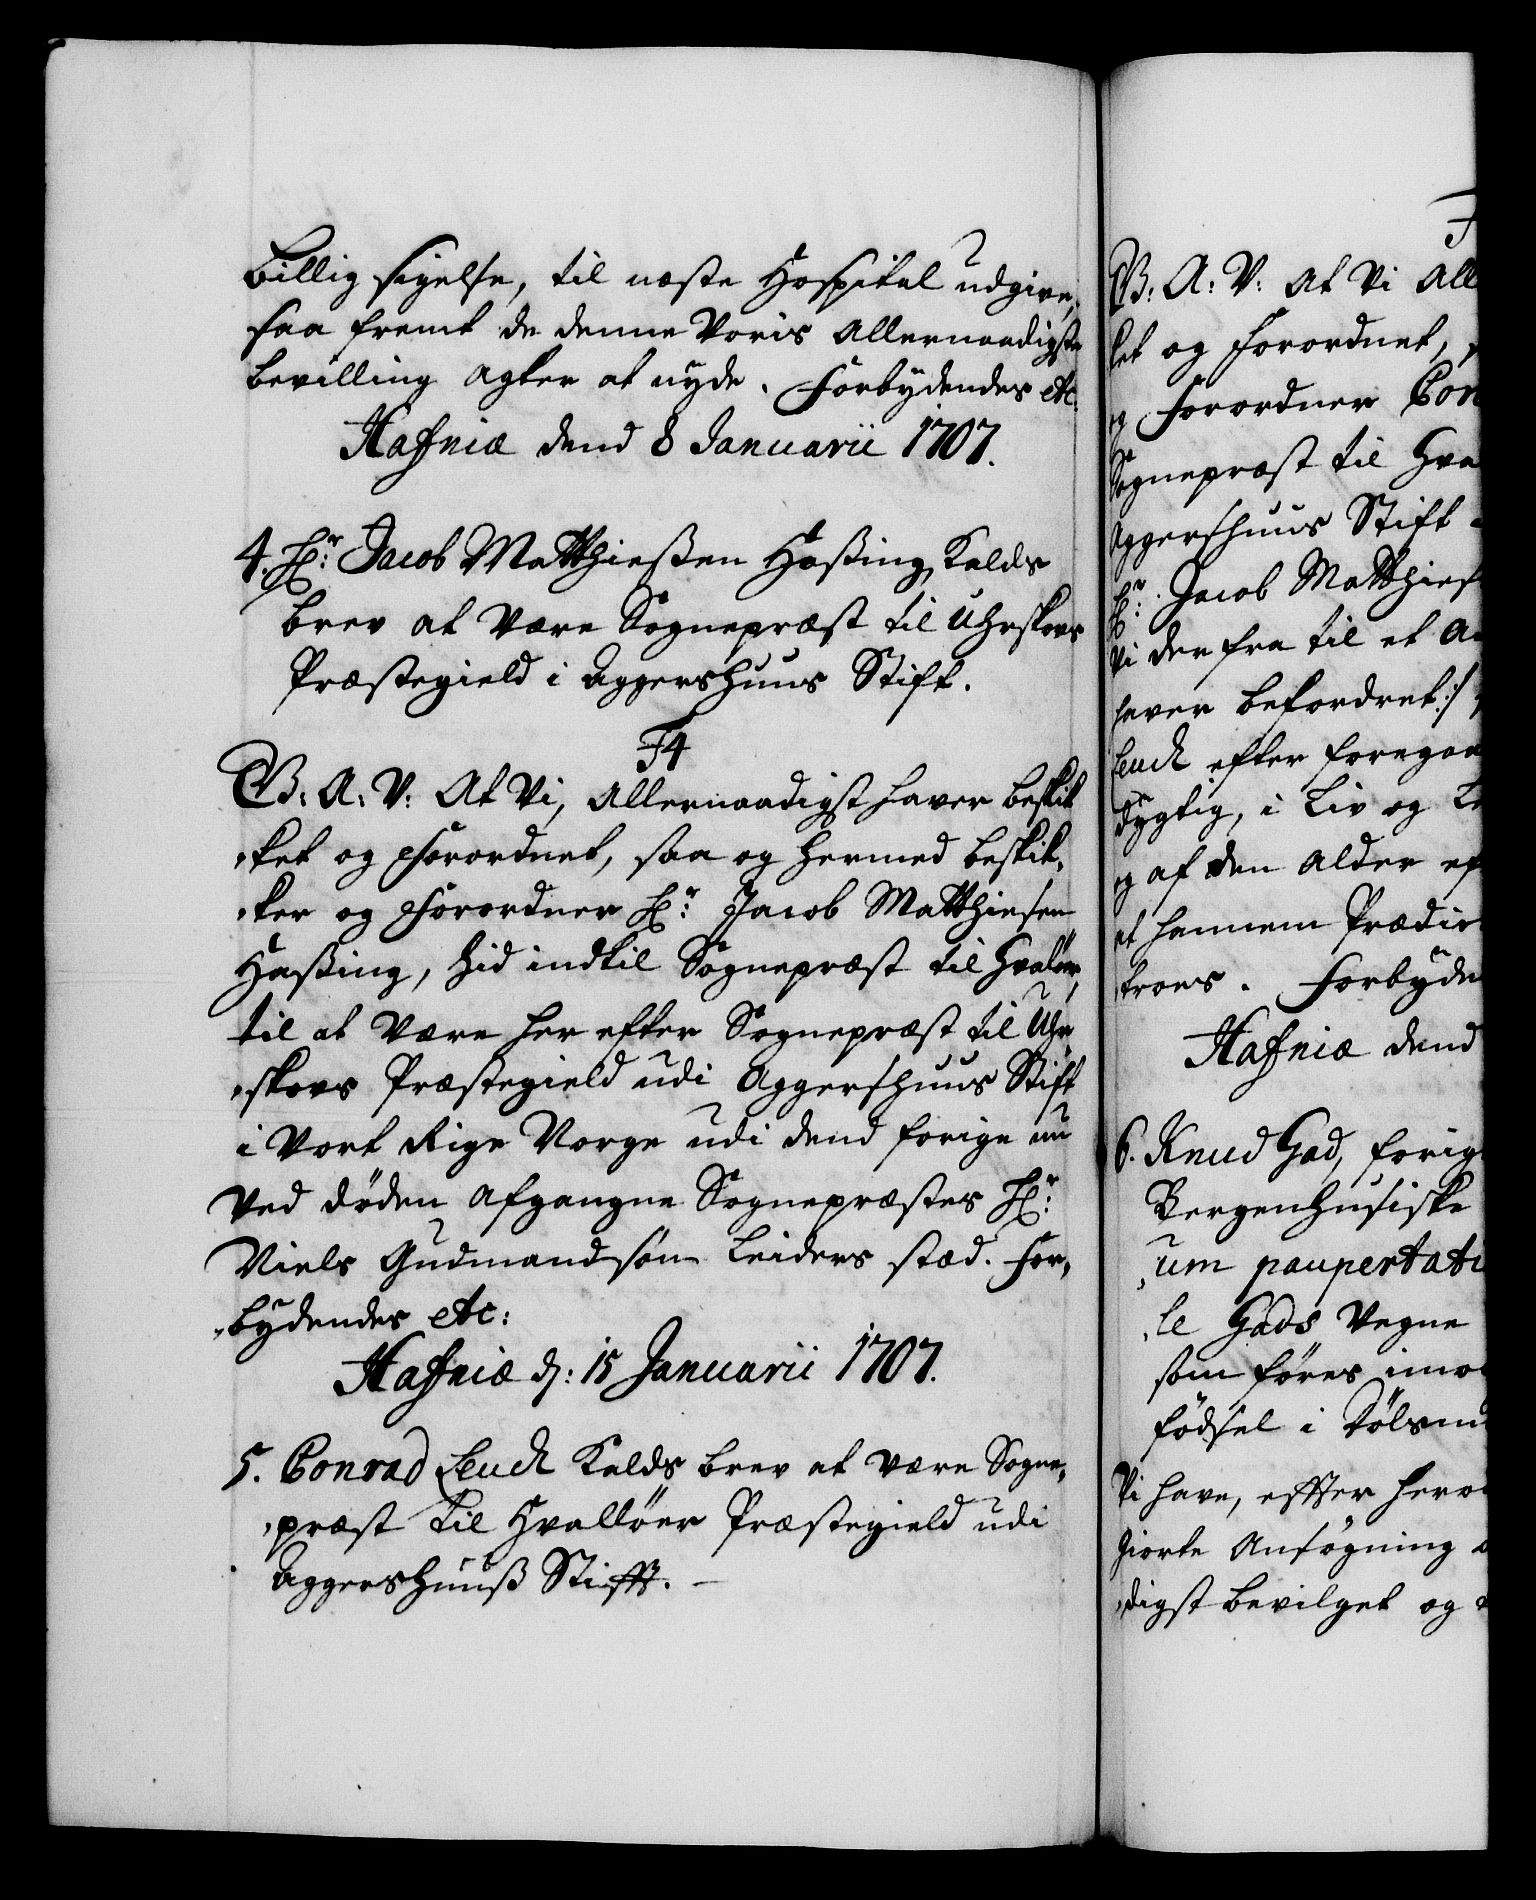 billig sigelse, til næste Hospital udgive,
saa fremt de denne Voris Allernaadigste
bevilling agter at nyde. Forbydendes etc.
Hafniæ dend 8 Januarii 1707.
4. Hr: Jacob Matthiesen Hassing Kalds
brev at være Sognepræst til Uhrskovs
Præstegield i Aggershuus Stift.
F4
G: A: V: At Vi, Allernaadigst haver beskik
„ket og forordnet, saa og hermed beskik„
„ker og forordner Hr: Jacob Matthiesen
Hassing, hid indtil Sognepræst til Hvaløer,
til at være her efter Sognepræst til Uhr„
„skovs Præstegield udi Aggershuus Stift
i Vort Rige Norge udi dend forige nu
ved døden afgangne Sognepræstes Hr:
Niels Gudmandsøn Leiders stæd. For„
„bydendes etc:
Hafniæ d: 15 Januarii 1707.
5. Conrad Leuch Kalds brev at være Sogne„
„præst til Hvalløer Præstegield udi
Aggershuuß Stifft. –
G: A: V: At Vi All
ket og forordnet,
og forordner Con
Sognepræst til Hva
Aggershuus Stift
Hr: Jacob Matthies
Vi der fra til et An
haver befordret:/
Leuch efter foregaa
dygtig, i Liv og Le
og af den alder ef
et hannem Prædic
„troes. Forbyde
Hafniæ dend
6. Knud Gad, forig
Bergenhusiske
„um paupertati
„le Gads Vegne
som føres imo
fødsel i Tolsm
Vi have, effter her
giorte Ansøgning
„digst bevilget og